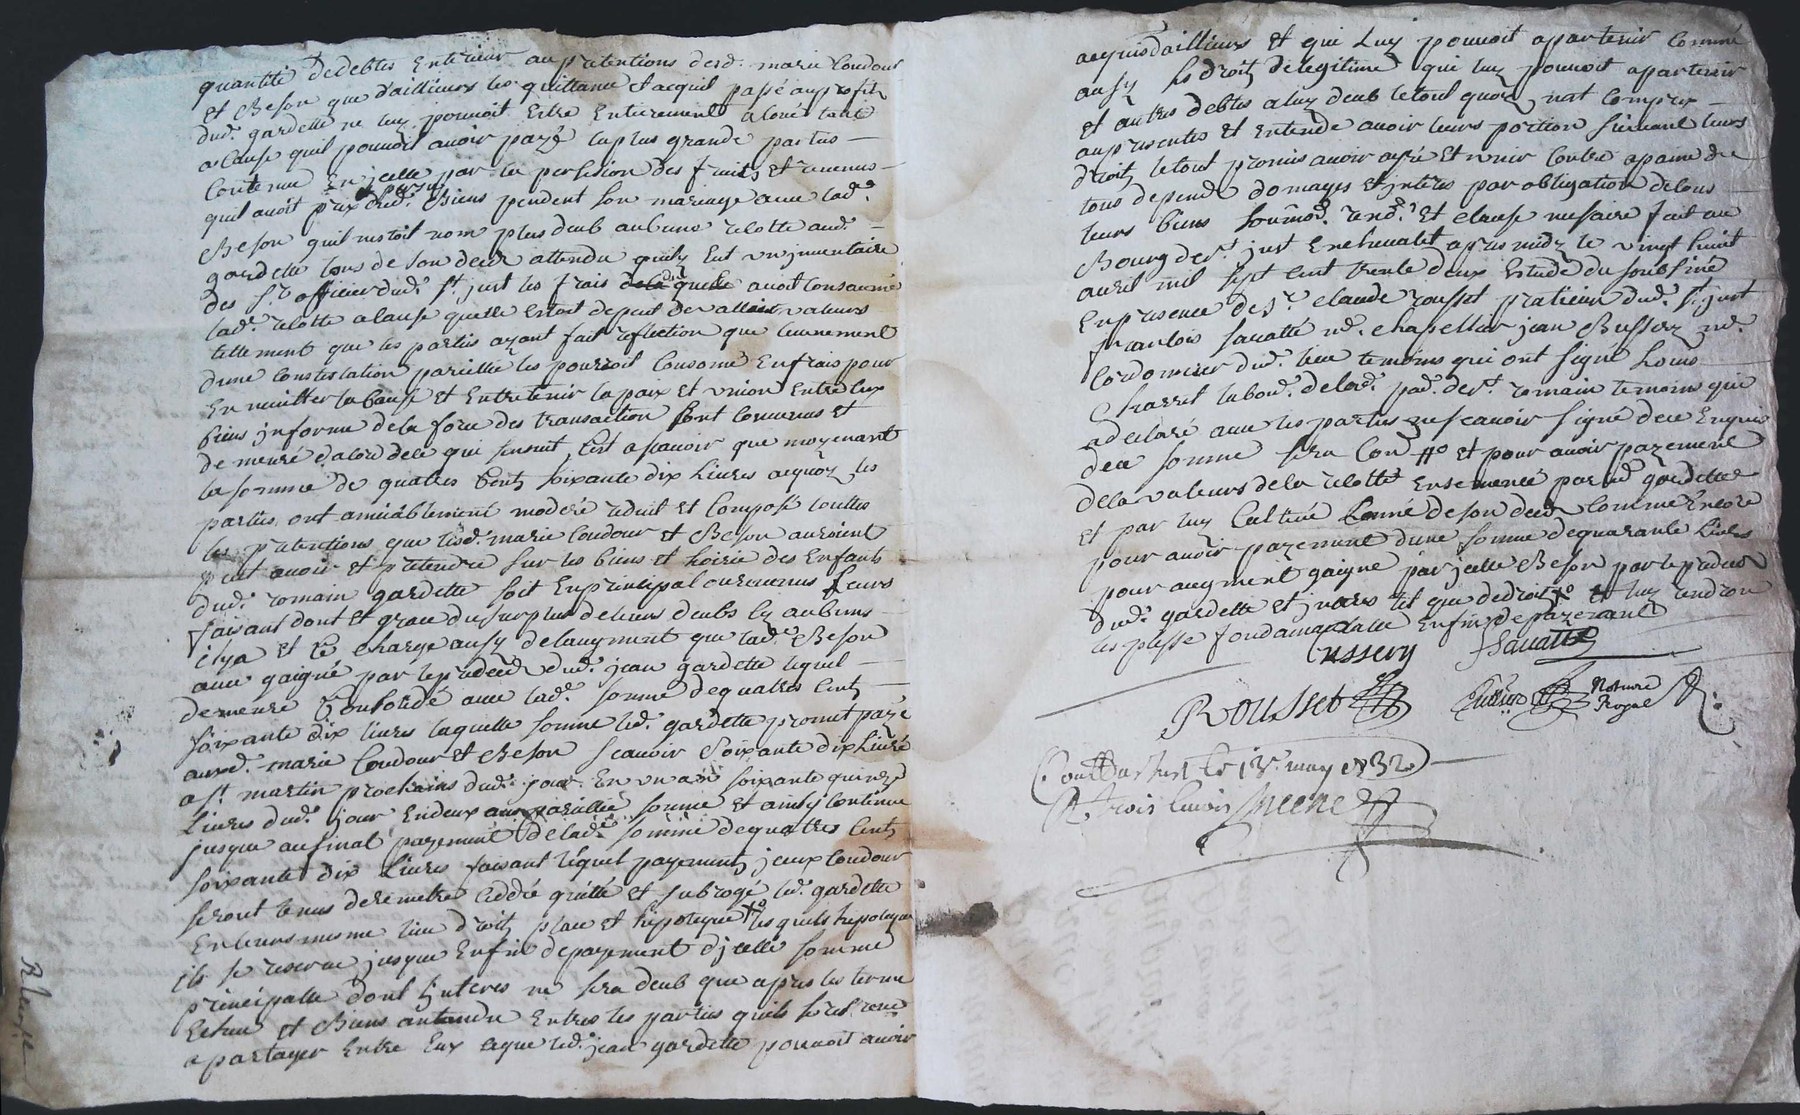 quantité de debtes Enterieur aux pretentions desd. marie Coudour
et Beson que d'aillieurs les quittance et acquit passé au profit
dud. gardette ne luy pouvoit Estre Entierement aloué
a Cause quil pouvoit avoir payé la plus grande parties
Contenue En jcelle par la perseption des fruits et revenus
quil avoit pris & perçus Biens pendent son mariage avec lad.
Beson quil restoit rom plus deub aucune relotte aud.
gardette lors de son deces attendu quily Eut un jnventaire
des Srs officier dud. St. just les frais de quelle avoit Consommé
lad. relotte a Cause quelle Estoit de peut de valeurs
tellement que les parties ayant fait reflection que levenement
dune Constestation pareillie les pourroit Consomé En frais pour
En eviter la Cause et Entretenir la paix et union Entre Eux
bien jnformé de la force des transaction sont Convenus et
demeuré dacord de Ce qui sensuit, C'est a scavoir que moyenant
la somme de quatres Cents soixante dix Livres a quoy les
parties ont amiablement moderé reduit et Composé touttes
les pretentions que lesd. marie Coudour et Beson auroient
peut avoir et pretendre sur les biens et hoirie des Enfants
dud. romain gardette soit En principal ou revenus Leurs
faisant dont et grace du surplus de leurs deubs sy aucuns
il y a et Ce Charge aussy de laugment que lad. Beson
avec gaigné par le predeces dud. jean gardette lequel
demeure Confondé avec lad. somme de quatres Cents
soixante dix livres laquelle somme led. gardette promet payé
auxd. marie Coudour et Beson scavoir soixante dix Livre
a St. martin prochains dud. jour En un an soixante quinze
Livres dud. jour En deux ans pareillie somme et ainsy Continue
jusque au final payement de lad. somme de quatres Cents
soixante dix Livres faisant lequel payement jceux Coudour
seront tenus de remettre Ceddé quitté et subrogé led. gardette
En leurs mesme lieu droits place et hipoteque les quels hipoteque
ils se reserve jusque Enfin de payement djcelle somme
principalle dont l'jnteres ne sera deub que apres les terme
Echeue et Biens antandu Entres les parties quils
a partager Entre Eux Ce que led. jean gardette pouvoit avoir
acquis dailliers et qui Luy pouvoit apartenir Comme
aussy les droits de legitime qui luy pouvoit apartenir
et autres debtes a luy deub le tout quoy nat Compris
aux presentes et Entende avoir leurs portion suivant leurs
droits le tout promis avoir agré et venir Contre a paine de
tous depend domages et jnteres par obligation de tous
leurs biens soumis. rend. et Clause necessaire fait au
Bourg de St. just En chevalet apres midy le vingt huit
avril mil sept Cent trente deux Estude du soubsiné
En presence de Sr. Claude rousset praticien dud. St. just
francois savatte md. Chapellier jean Bussery md.
Cordonnier dud. lieu temoins qui ont signé Louis
Charret labour. de lad. par. de St. romain temoin qui
a declaré avec les parties ne scavoir signé de ce Enquis
dece somme sera Con et pour avoir payement
de la valeurs de la relotte Ensemencé par led gardette
et par luy Cultivé Lanné de son deces Comme Encore
pour avoir payement dune somme de quarante Livres
pour augment gaigné par jcelle Beson par le predeces
dud. gardette et jnteres tel que de droit et luy tendron
les plesse Enfin de payement
Bussery Savatte
Rousset
Notaire
Royal
Contt a St just le 13e. may 1732
R. trois livres